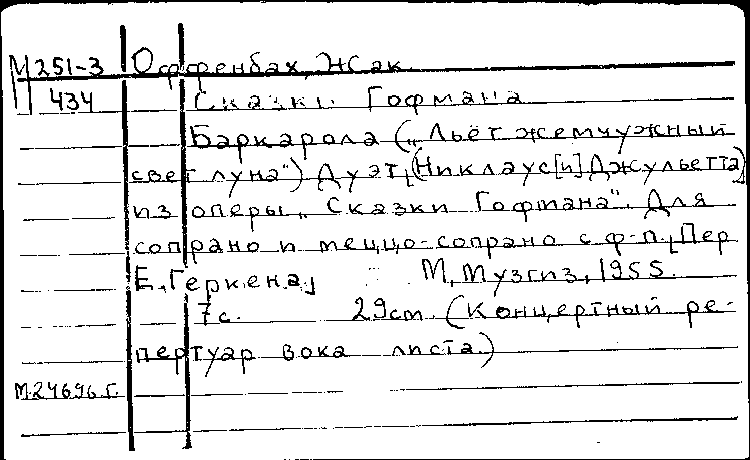 М251-3 Оффенбах, Жак.
434 Сказки Гофмана
Баркарола („Льёт жемчужный
свет луна") Дуэт [(Никлаус [и] Джульетта)
из оперы „Сказки Гофмана". Для
сопрано и меццо-сопрано с ф-п. [Пер
Е. Геркена] М, Музгиз, 1955.
7с. 29см. (Концертный ре-
пертуар вока листа.)
М.24696 г.